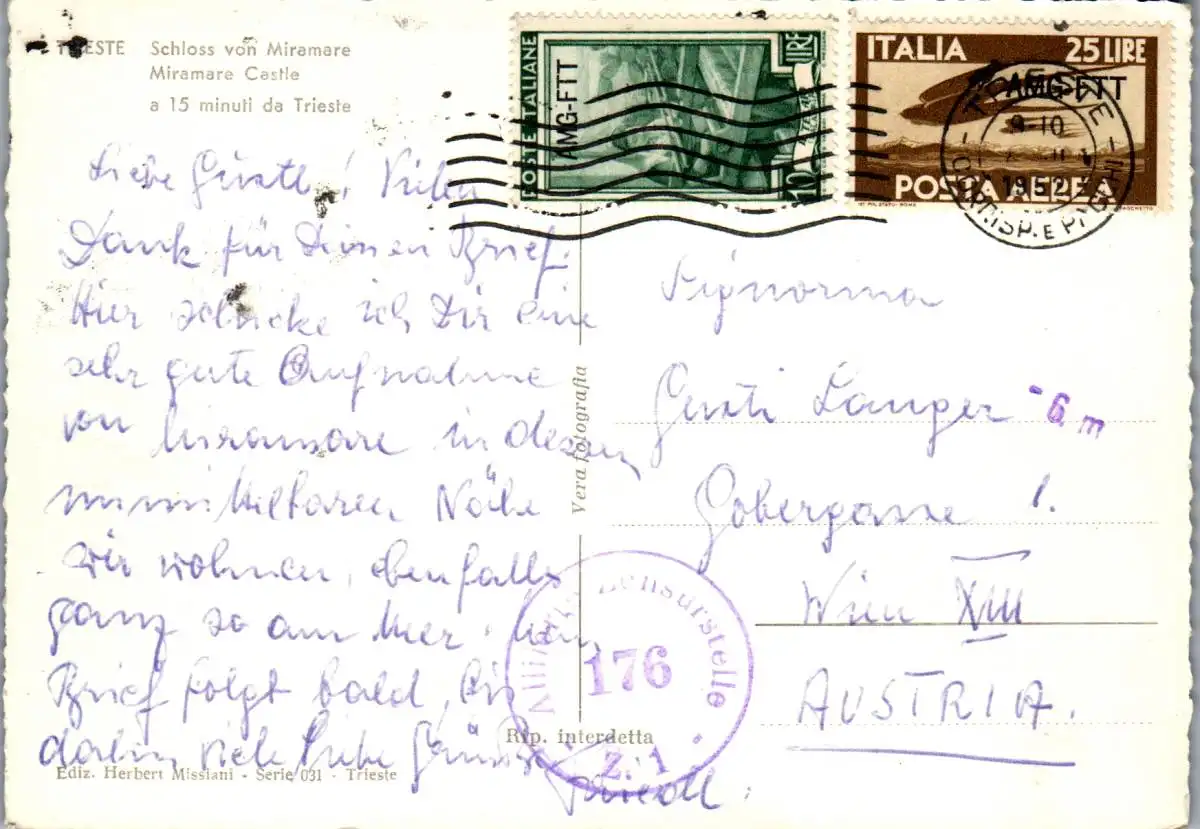 TRIESTE Schloss von Miramare
Miramare Castle
a 15 minuti da Trieste
POSTE ITALIANE
AMG-FTT
LIRE
10
ITALIA 25 LIRE
AMG-FTT
POSTA AEREA
TRIESTE
9-10
1952
CORRISP. E PACCHI
Liebe Gustl! Vielen
Dank für Deinen Brief.
Hier schicke ich Dir eine
sehr gute Aufnahme
von Miramare in dessen
unmittelbarer Nähe
wir wohnen, ebenfalls
ganz so am Meer. Mein
Brief folgt bald, bis
dahin viele liebe Grüße
Signorina
Gusti Langer
- 6. m
Gobergasse 1.
Wien XIII
AUSTRIA.
Vera fotografia
Militärische Zensurstelle
176
Z. 1
Rip. interdetta
Ediz. Herbert Missiani - Serie 031 - Trieste